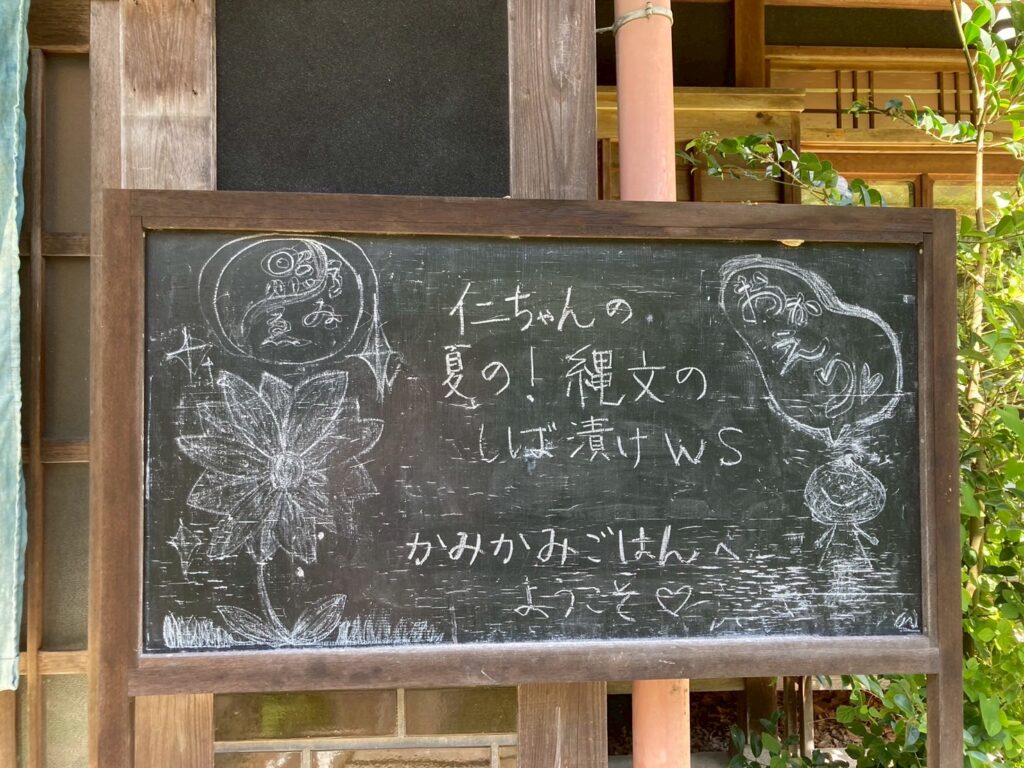 仁ちゃんの
夏の！縄文の
しば漬けWS
かみかみごはんへ
ようこそ♡
おかえり